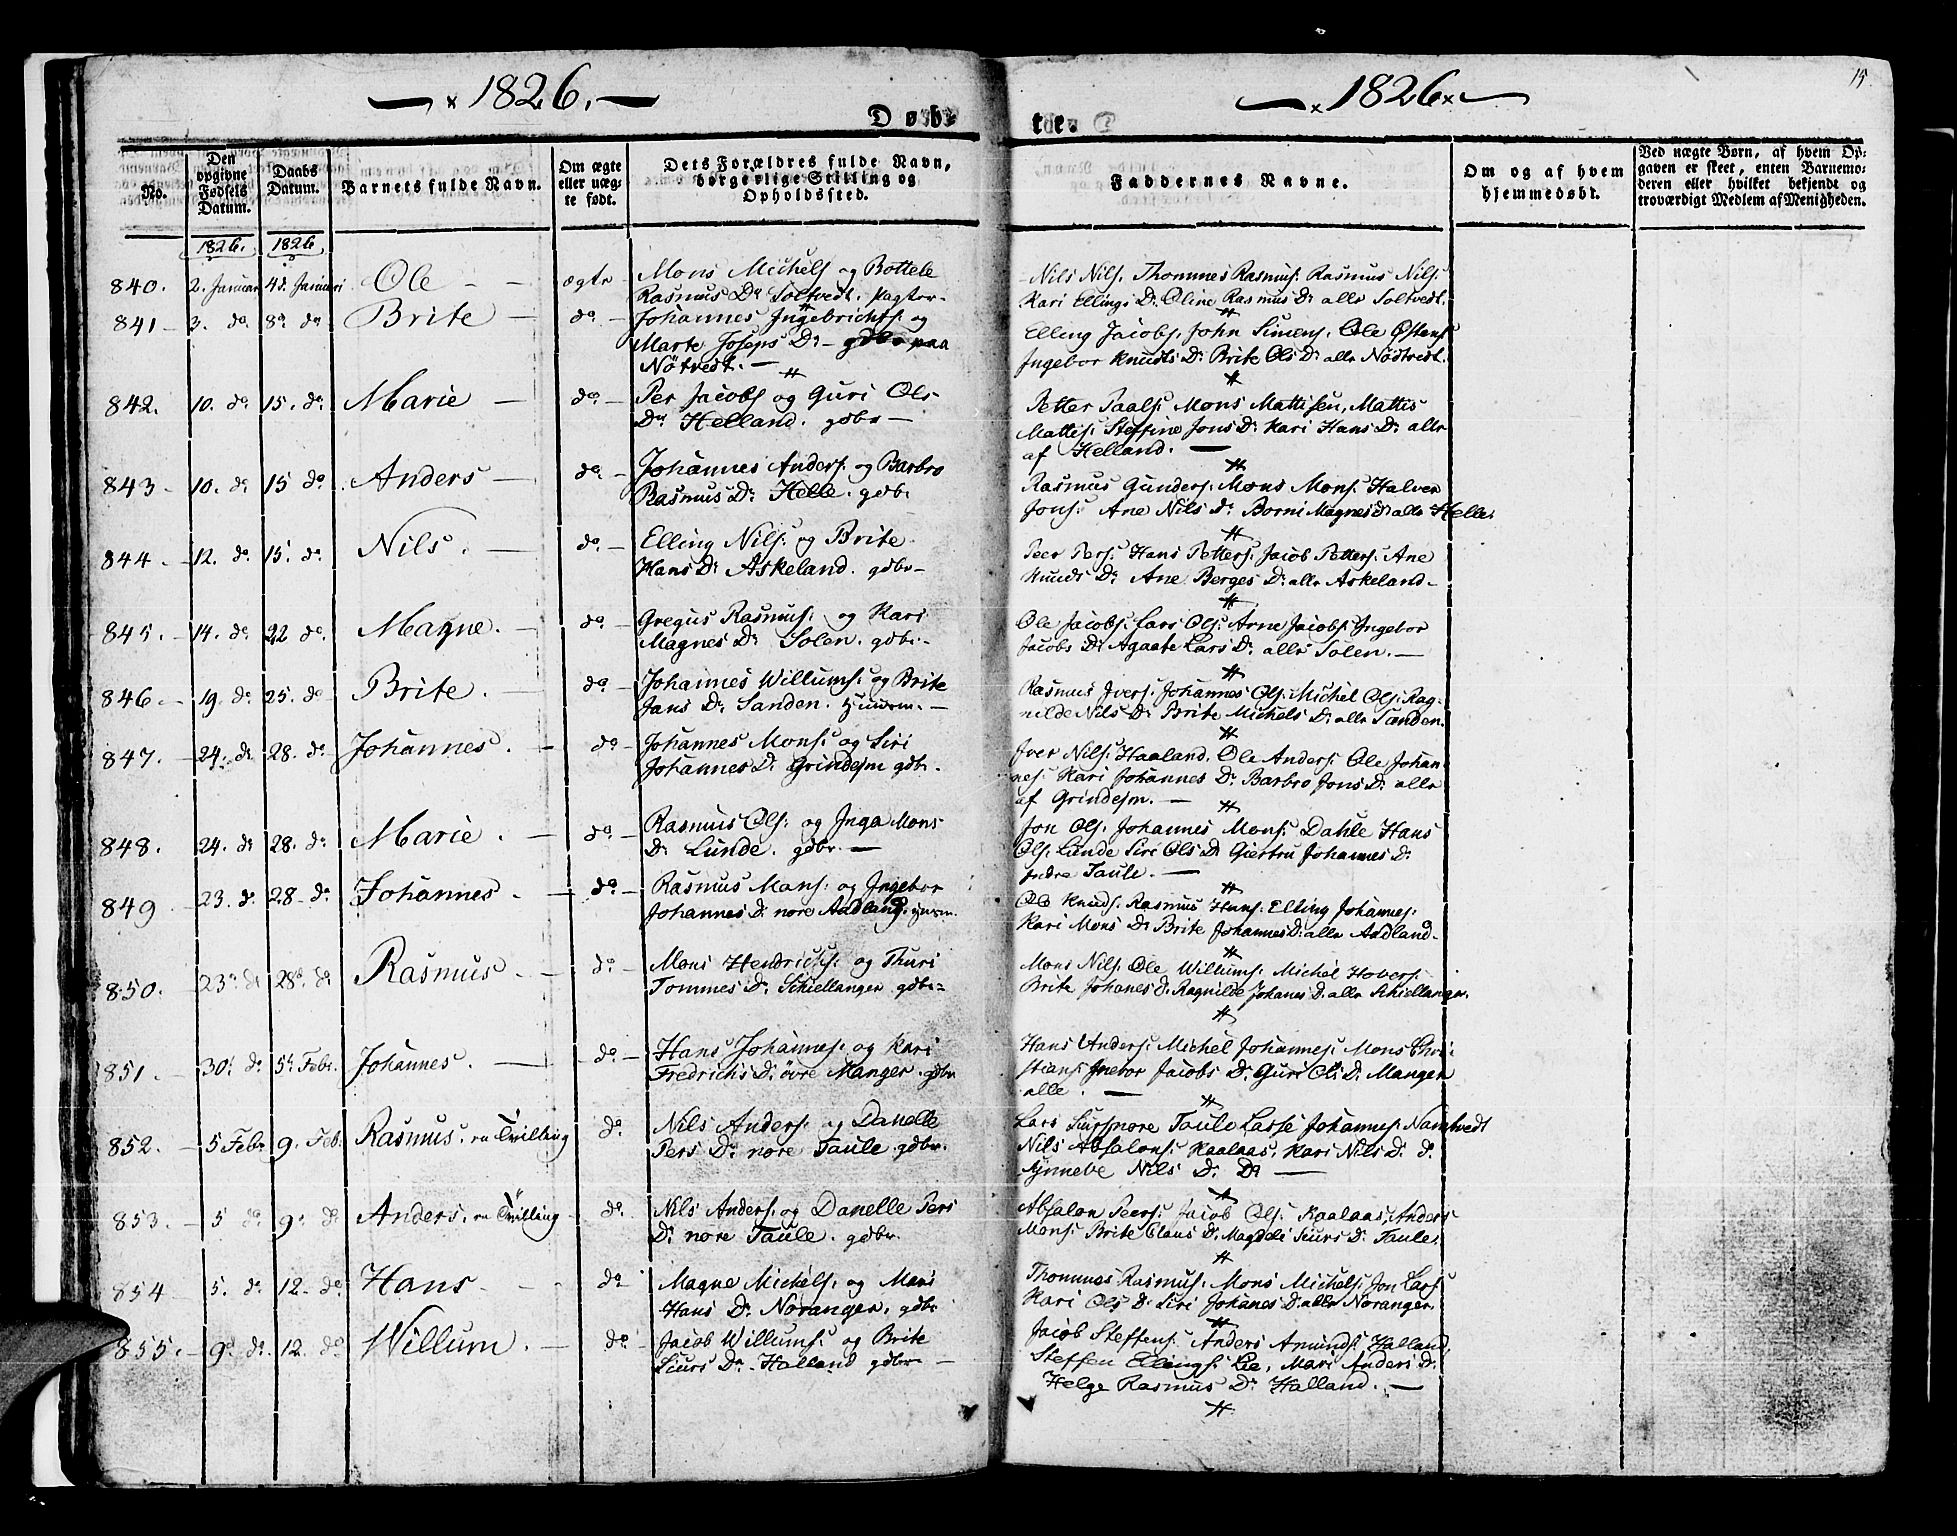 1826.
1826
15
Døb-
te.
No.
Den opgivne Fødsels Datum.
Daabs Datum.
Barnets fulde Navn.
Om ægte eller uæg- te født.
Dets Forældres fulde Navn, borgerlige Stilling og Opholdssted.
Faddernes Navne.
Om og af hvem hjemmedøbt.
Ved uægte Børn, af hvem Op- gaven er skeet, enten Barnemo- deren eller hvilket bekjendt og troværdigt Medlem af Menigheden.
1826. 1826
840. 2. Januar Januari Ole ægte Mons Michels og Bottele
Rasmus Dr Soltvedt. pagter.
Nils Nils. Thommes Rasmus. Rasmus Nils.
Kari Ellings Dr Oline Rasmus Dr alle Soltvedt.
841 3. do 8de do Brite do Johannes Ingebrichts. og
Marte Joseps Dr gdbr paa
Nötvedt.
Elling Jacobs, John Simens. Ole Østens
Ingebor Knudts Dr Brite Ols Dr alle Nödtvedt.
842. 10. do 15. do Marie do Per Jacobs og Guri Ols
Dr Helland. gdbr
Petter Paals: Mons Mattisen, Mattis
Mattis: Steffine Jons Dr Kari Hans Dr alle
af Helland.
843 10. do 15 do Anders do Johannes Anders. og Barbro
Rasmus Dr Helle. gdbr
Rasmus Gunders: Mons Mons: Halver
Jons: Ane Nils Dr Borni Magnes Dr alle Helle.
844 12. do 15. do Nils. do Elling Nils: og Brite
Hans Dr Askeland. gdbr
Peer Pers: Hans Petters: Jacob Petters: Ane
Knuds Dr Ane Berges Dr alle Askeland
845. 14. do 22 do Magne. do Gregus Rasmus: og Kari
Magnes Dr Solen. gdbr
Ole Jacobs: Lars Ols: Arne Jacobs: Ingebor
Jacobs Dr Agaate Lars Dr alle Solen.
846 19. do 25. do Brite. do Johannes Willums. og Brite
Jans Dr Sanden. Huusm.
Rasmus Ivers: Johannes Ols: Michel Ols: Rag-
nilde Nils Dr Brite Michels Dr alle Sanden.
847. 24. do 28. do Johannes. do Johannes Mons: og Siri
Johannes Dr Grindejm gdbr.
Iver Nils: Haaland. Ole Anders: Ole Johan-
nes: Kari Johannes Dr Barbro Jons Dr alle
af Grindejm.
848. 24. do 28. do Marie. do Rasmus Ols: og Inga Mons
Dr Lunde. gdbr.
Jon Ols: Johannes Mons: Dahle Hans
Ols: Lunde Siri Ols Dr Giertru Johannes Dr
Indre Taule.
849 23. do 28 do Johannes. do Rasmus Mons: og Ingebor
Johannes Dr nore Aadland. Husm.
Ole Knuds: Rasmus Hans: Elling Johannes.
Kari Mons Dr Brite Johannes Dr alle Aadland.
850. 23 do 28de do Rasmus. do Mons Hendrichs: og Thuri
Tommes Dr Schiellanger gdbr
Mons Nils: Ole Willums: Michel Hovers:
Brite Johanes Dr Ragnilde Johanes Dr alle Schiellanger.
851. 30. do 5te Febr. Johannes. do Hans Johannes: og Kari
Fredrichs Dr övre Manger. gdbr
Hans Anders: Michel Johannes: Mons Chri-
stians Jnebor Jacobs Dr Guri Ols Dr Manger
alle.
852. 5 Febr 9. Feb. Rasmus. en Tvilling do. Nils Anders: og Danelle
Pers Dr nore Taule. gdbr.
Lars Siurs nore Taule Lasse Johannes: Namtvedt
Nils Absalons: Kaalaas, Kari Nils Dr do
Synneve Nils Dr Do
853. 5 do 9. do Anders. en Tvilling do. Nils Anders. og Danelle Pers
Dr nore Taule. gdbr.
Absalon Peers: Jacob Ols: Kaalaas, Anders
Mons: Brite Claus Dr Magdeli Siurs Dr Taule.
854 5. do 12. do Hans do Magne Michels: og Mari
Hans Dr Noranger. gdbr
Thommes Rasmus. Mons Michels: Jon Lars
Kari Ols Dr Siri Johanes Dr alle Noranger.
855. 9. do 12. do Willum. do Jacob Willums: og Brite
Siurs Dr Halland gdbr
Jacob Steffens: Anders Amunds. Halland,
Steffen Ellings. Lie, Mari Anders Dr
Helge Rasmus Dr Halland.